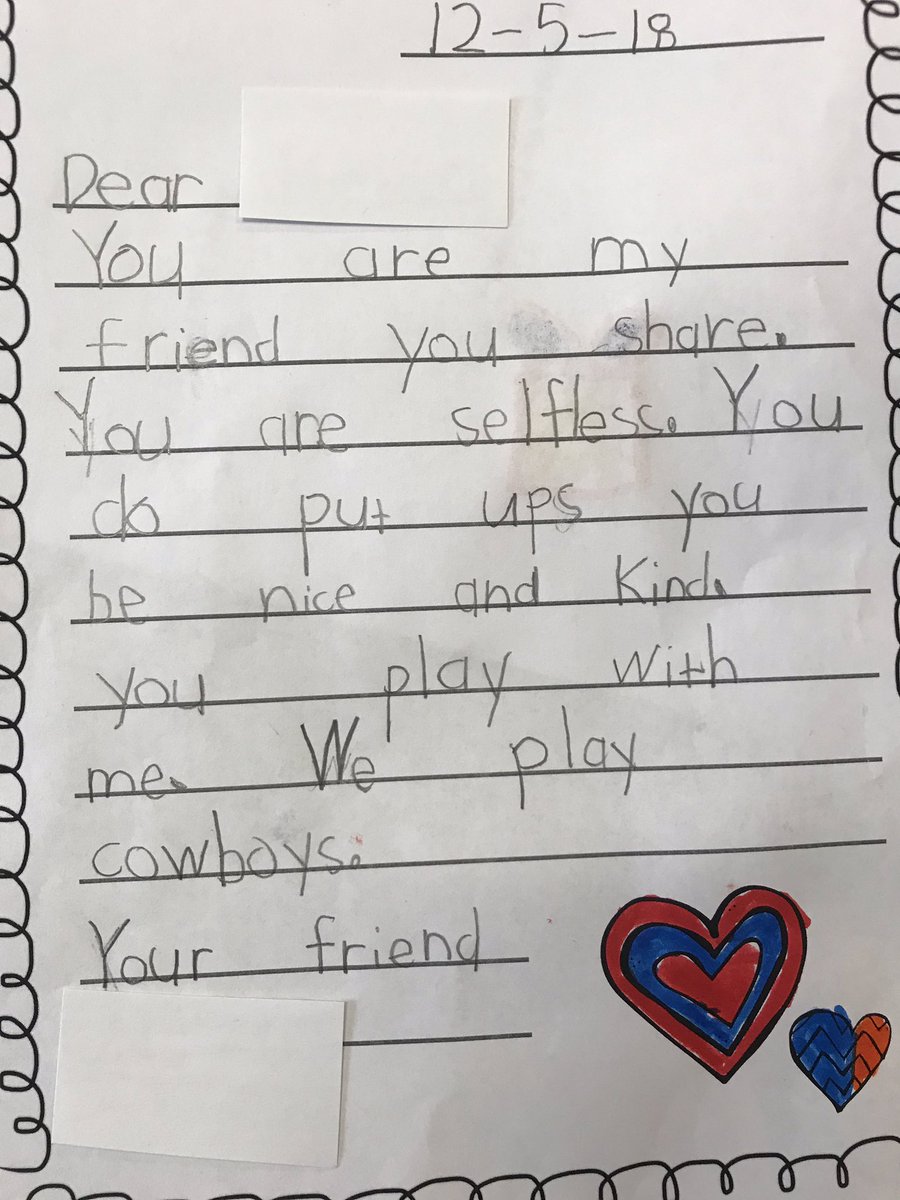 12-5-18
Dear
You are my
friend you share.
You are selfless. You
do put ups you
be nice and kind.
you play with
me. We play
cowboys.
Your friend